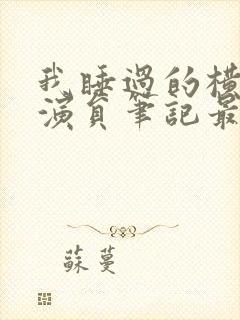 我睡過的橫
演員筆記最
蘇蔓